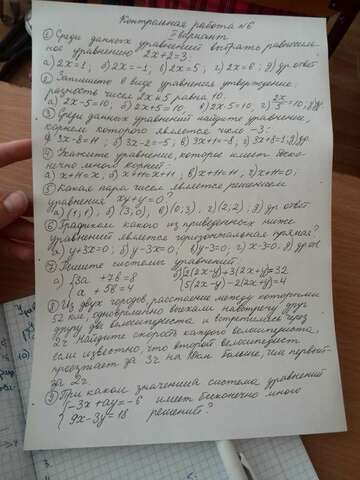 Контрольная работа №6
I вариант
① Среди данных уравнений выбрать равносиль-
ное уравнению 2x+2=3.
а) 2x=1; б) 2x=-1; в) 2x=5; г) 2x=6; д) др. ответ
② Запишите в виде уравнения утверждение:
разность чисел 2x и 5 равна 10.
а) 2x-5=10; б) 2x+5=10; в) 2x·5=10; г) 2x/5=10; д) др.
③ Среди данных уравнений найдите уравнение,
корнем которого является число -3:
3x-8=11; б) 3x-2=-5; в) 3x+1=-8; г) 3x+8=1; д) др.
④ Укажите уравнение, которое имеет беско-
нечно много корней:
⑤ Какая пара чисел является решением
уравнения xy+y=0:
а) (1;1); б) (3;0); в) (0;3); г) (2;2); д) др. ответ
⑥ Графиком какого из приведенных ниже
уравнений является горизонтальная прямая?
а) y+3x=0; б) y-3x=0; в) y-3=0; г) x-3=0; д) др. от
⑦ Решите системы уравнений
а) {3a+7b=8
{a+5b=4
б) {2(2x-y)+3(2x+y)=32
{5(2x-y)-2(2x+y)=4
⑧ Из двух городов, расстояние между которыми
52 км, одновременно выехали навстречу друг
другу два велосипедиста и встретились через
2ч. Найдите скорость каждого велосипедиста,
если известно, что второй велосипедист
проезжает за 3ч на больше, чем первый
за 2ч.
⑨ При каком значении a система уравнений
{-3x+ay=-6 имеет бесконечно много
{9x-3y=18 решений?